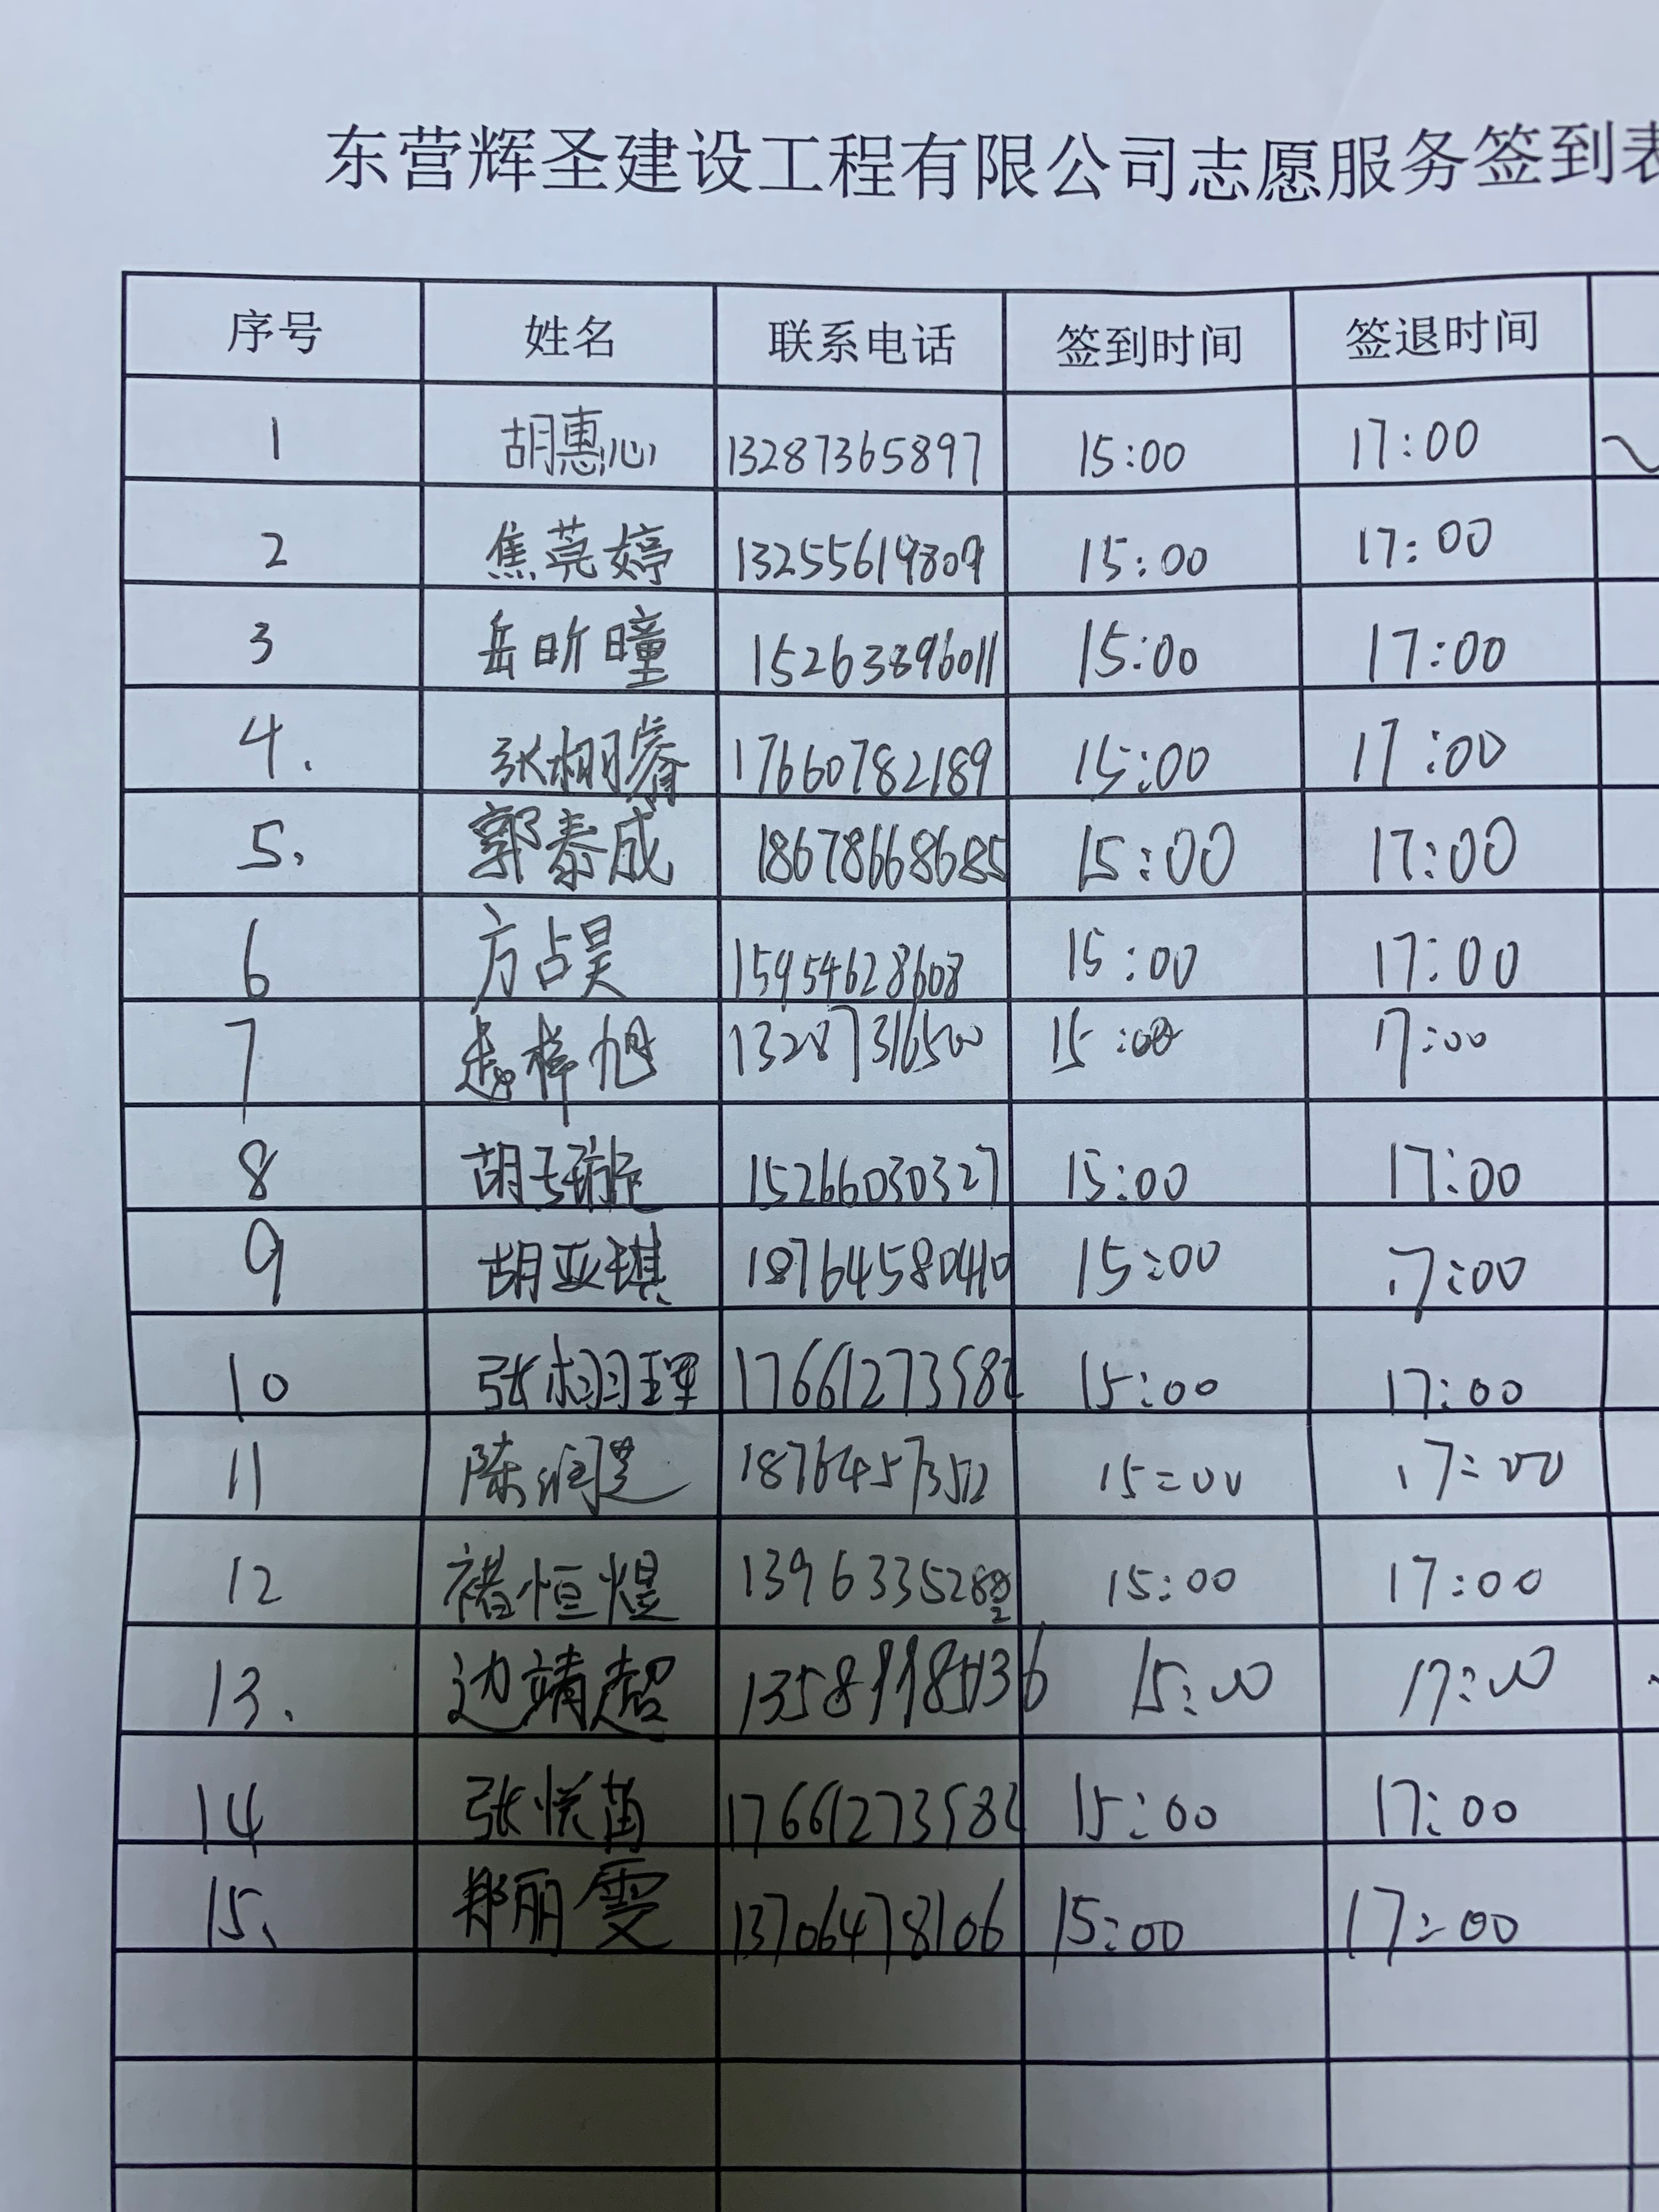 东营辉圣建设工程有限公司志愿服务签到表
序号 姓名 联系电话 签到时间 签退时间
1 胡惠心 13287365897 15:00 17:00
2 焦莞婷 13255619809 15:00 17:00
3 岳昕曈 15263896011 15:00 17:00
4. 张栩睿 17660782189 15:00 17:00
5. 郭泰成 18678668685 15:00 17:00
6 方占昊 15954628608 15:00 17:00
7 13287316500 15:00 17:00
8 15266030327 15:00 17:00
9 胡亚琪 18764580410 15:00 17:00
10 张栩珲 15:00 17:00
11 18764573512 15:00 17:00
12 褚恒煜 15:00 17:00
13. 边靖超 15:00 17:00
14 张悦苗 15:00 17:00
15. 郑丽雯 13706478106 15:00 17:00